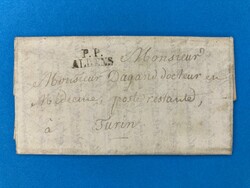 P.P.
ALBENS
Monsieur
Monsieur Dagand docteur en
Médecine, poste restante,
à
Turin